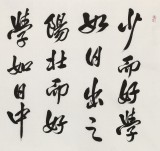 少而好學
如日出之
陽壯而好
學如日中